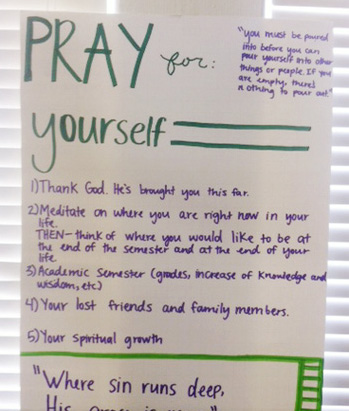 PRAY for:
"you must be poured
into before you can
pour yourself into other
things or people. If you
are empty, there's
nothing to pour out"
yourself
1) Thank God. He's brought you this far.
2) Meditate on where you are right now in your
life.
THEN- think of where you would like to be at
the end of the semester and at the end of your
life.
3) Academic Semester (grades, increase of Knowledge and
wisdom, etc)
4) Your lost friends and family members.
5) Your spiritual growth
"Where sin runs deep,
His